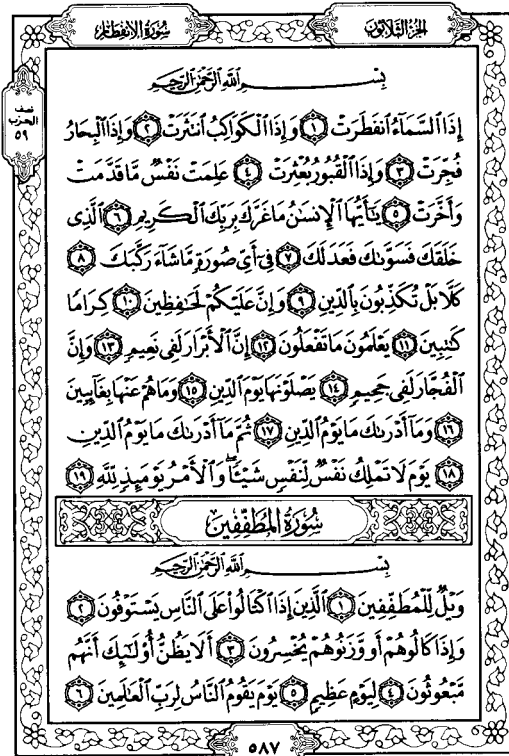 سُورَةُ الانفِطَار
الجُزءُ الثَّلاثُون
نصف
الحزب
٥٩
بِسْمِ ٱللَّهِ ٱلرَّحْمَٰنِ ٱلرَّحِيمِ
إِذَا ٱلسَّمَآءُ ٱنفَطَرَتْ ١ وَإِذَا ٱلْكَوَاكِبُ ٱنتَثَرَتْ ٢ وَإِذَا ٱلْبِحَارُ
فُجِّرَتْ ٣ وَإِذَا ٱلْقُبُورُ بُعْثِرَتْ ٤ عَلِمَتْ نَفْسٌ مَّا قَدَّمَتْ
وَأَخَّرَتْ ٥ يَٰٓأَيُّهَا ٱلْإِنسَٰنُ مَا غَرَّكَ بِرَبِّكَ ٱلْكَرِيمِ ٦ ٱلَّذِى
خَلَقَكَ فَسَوَّىٰكَ فَعَدَلَكَ ٧ فِىٓ أَىِّ صُورَةٍ مَّا شَآءَ رَكَّبَكَ ٨
كَلَّا بَلْ تُكَذِّبُونَ بِٱلدِّينِ ٩ وَإِنَّ عَلَيْكُمْ لَحَٰفِظِينَ ١٠ كِرَامًا
كَٰتِبِينَ ١١ يَعْلَمُونَ مَا تَفْعَلُونَ ١٢ إِنَّ ٱلْأَبْرَارَ لَفِى نَعِيمٍ ١٣ وَإِنَّ
ٱلْفُجَّارَ لَفِى جَحِيمٍ ١٤ يَصْلَوْنَهَا يَوْمَ ٱلدِّينِ ١٥ وَمَا هُمْ عَنْهَا بِغَآئِبِينَ
١٦ وَمَآ أَدْرَىٰكَ مَا يَوْمُ ٱلدِّينِ ١٧ ثُمَّ مَآ أَدْرَىٰكَ مَا يَوْمُ ٱلدِّينِ
١٨ يَوْمَ لَا تَمْلِكُ نَفْسٌ لِّنَفْسٍ شَيْـًٔا ۖ وَٱلْأَمْرُ يَوْمَئِذٍ لِّلَّهِ ١٩
سُورَةُ المُطَفِّفِين
بِسْمِ ٱللَّهِ ٱلرَّحْمَٰنِ ٱلرَّحِيمِ
وَيْلٌ لِّلْمُطَفِّفِينَ ١ ٱلَّذِينَ إِذَا ٱكْتَالُوا۟ عَلَى ٱلنَّاسِ يَسْتَوْفُونَ ٢
وَإِذَا كَالُوهُمْ أَو وَّزَنُوهُمْ يُخْسِرُونَ ٣ أَلَا يَظُنُّ أُو۟لَٰٓئِكَ أَنَّهُم
مَّبْعُوثُونَ ٤ لِيَوْمٍ عَظِيمٍ ٥ يَوْمَ يَقُومُ ٱلنَّاسُ لِرَبِّ ٱلْعَٰلَمِينَ ٦
٥٨٧